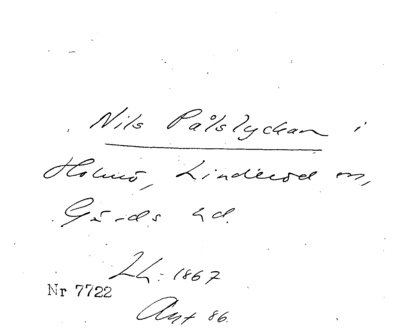 Nils Pålslyckan i
Holmö, Linderöd sn,
Gärds hd.
Lh: 1867
Nr 7722
Ant 86.